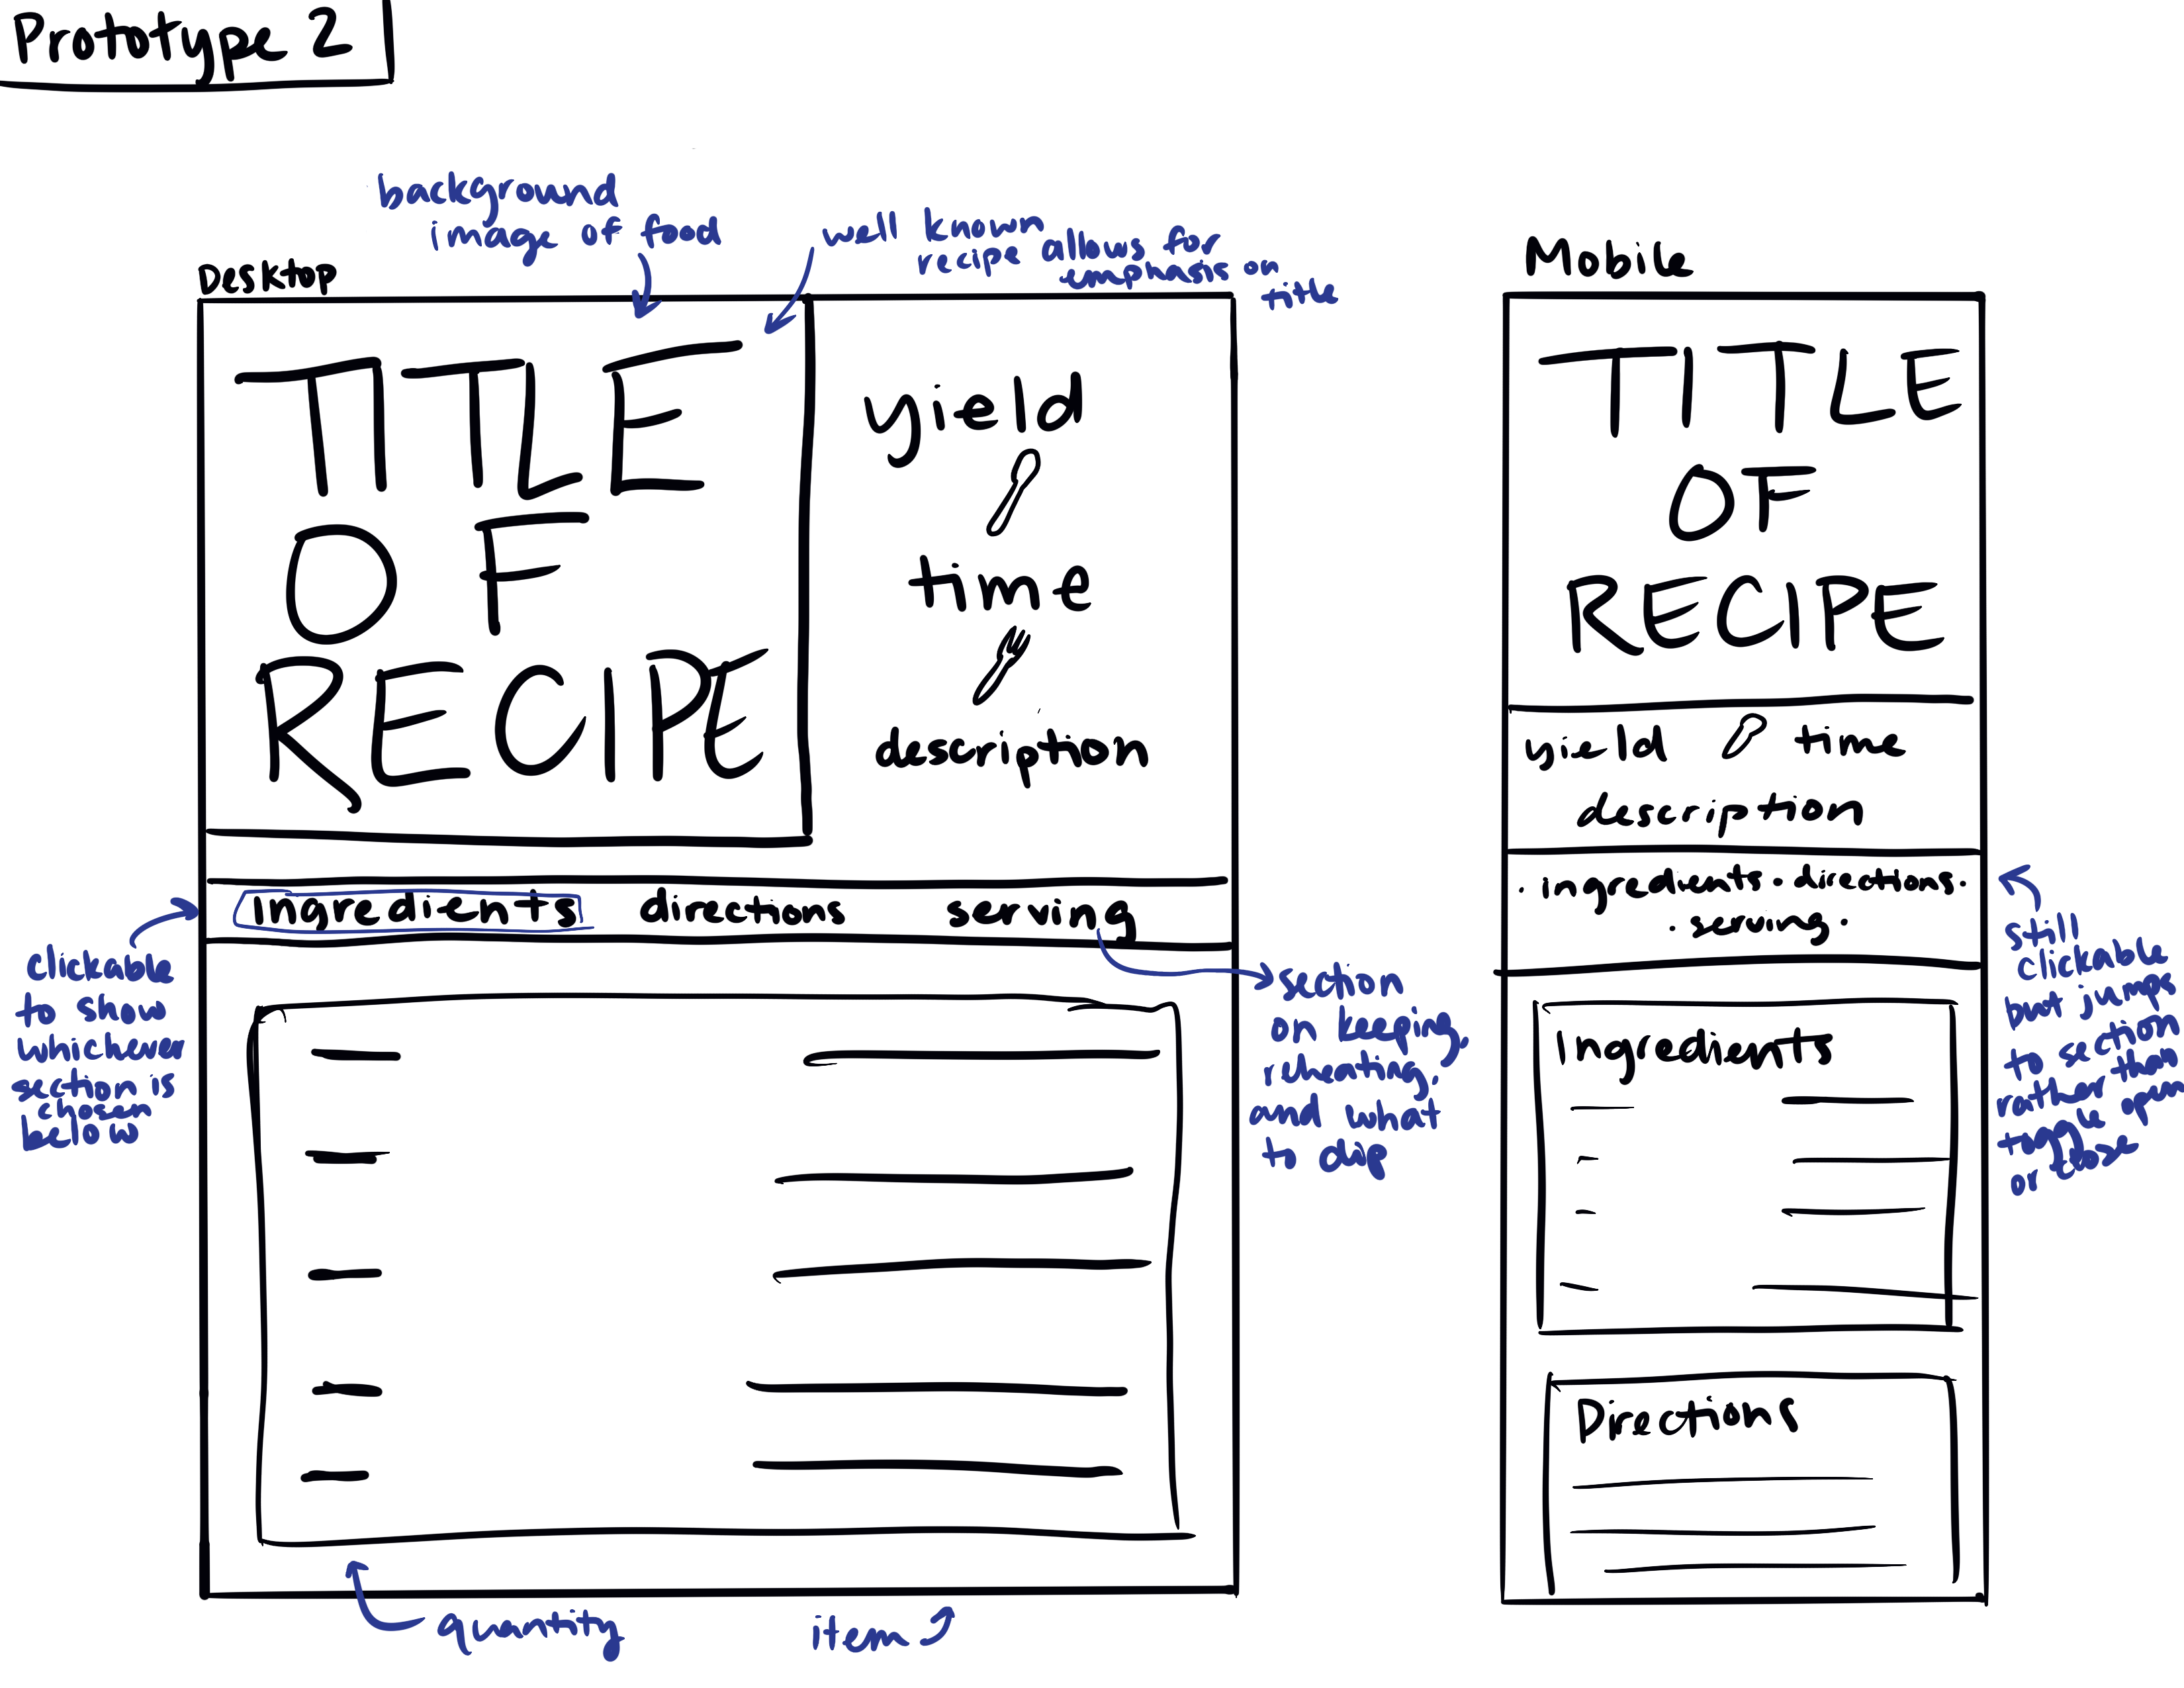 Prototype 2
background
image of food
well known
recipe allows for
emphasis on
title
Desktop
TITLE
OF
RECIPE
yield
time
description
Ingredients directions serving
clickable
to show
whichever
section is
chosen
below
section
on keeping,
reheating,
and what
to dip
quantity
item
Mobile
TITLE
OF
RECIPE
yield time
description
· ingredients · directions ·
· serving ·
still
clickable
but jumps
to section
rather than
toggle open
or close
Ingredients
Directions